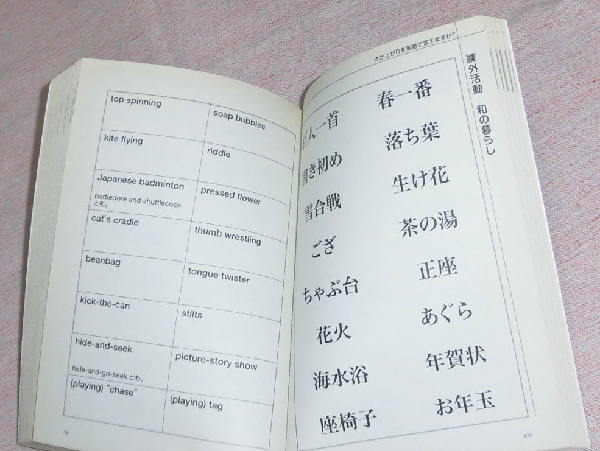 top spinning
soap bubbles
kite flying
riddle
Japanese badminton
battledore and shuttlecock
とも。
pressed flower
cat's cradle
thumb wrestling
beanbag
tongue twister
kick-the-can
stilts
hide-and-seek
hide-and-go-seek とも。
picture-story show
(playing) "chase"
(playing) tag
さか上がりを英語で言えますか?
課外活動 和の暮らし
春一番
落ち葉
生け花
茶の湯
正座
あぐら
年賀状
お年玉
人一首
書き初め
雪合戦
ござ
ちゃぶ台
花火
海水浴
座椅子